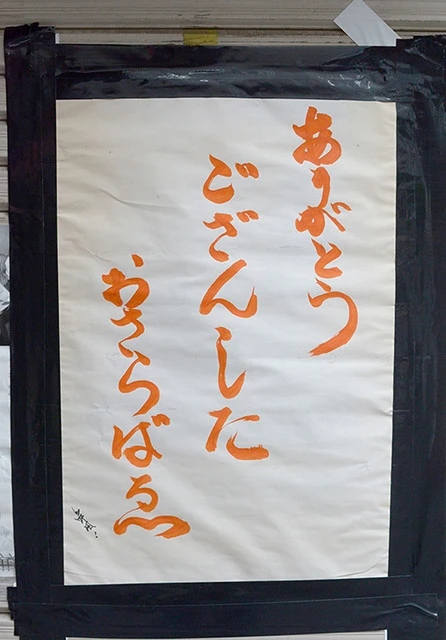 ありがとう
ござんした
おさらばゑ